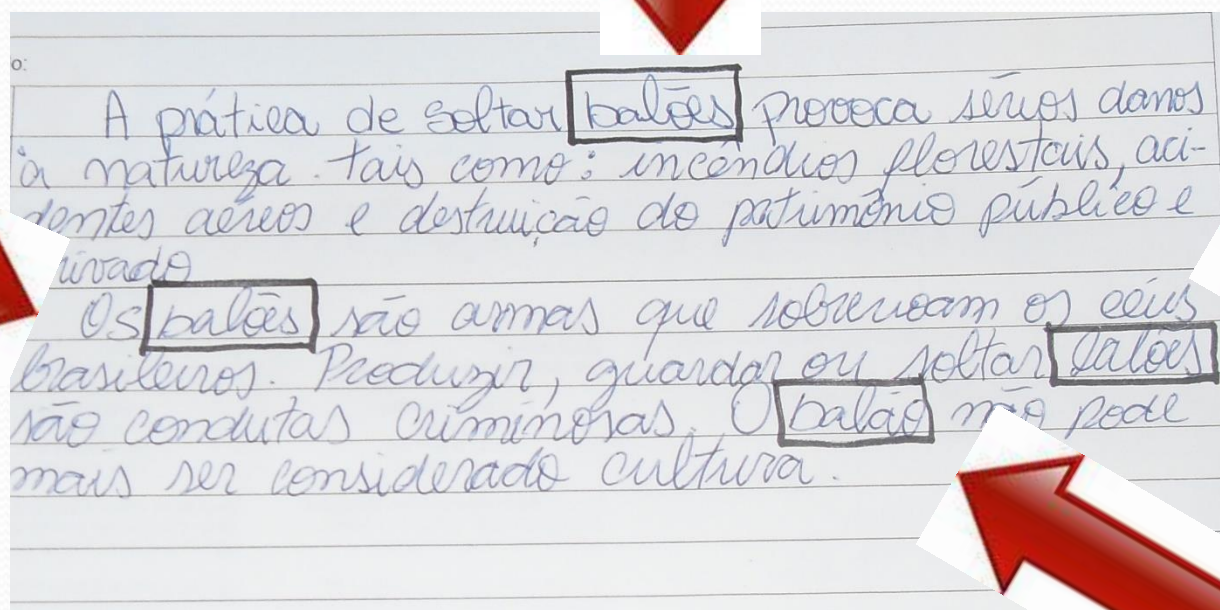 o:
A prática de soltar balões provoca sérios danos
à natureza. tais como: incêndios florestais, aci-
dentes aéreos e destruição do patrimônio público e
rivado
Os balões são armas que sobrevoam os céus
brasileiros. Produzir, guardar ou soltar balões
são condutas criminosas. O balão não pode
mais ser considerado cultura.